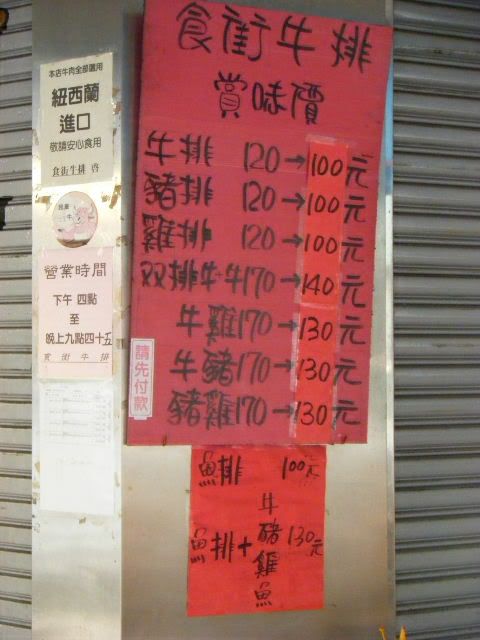 食街牛排
賞味價
牛排 120→100元
豬排 120→100元
雞排 120→100元
双排牛牛170→140元
牛雞170→130元
牛豬170→130元
豬雞170→130元
請先付款
魚排 100元
魚排+ 牛豬雞魚 130元
本店牛肉全部選用
紐西蘭
進口
敬請安心食用
食街牛排 啓
營業時間
下午 四點
至
晚上九點四十五
食街牛排